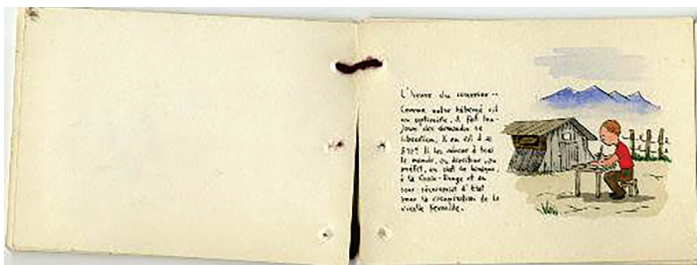 L'heure du courrier --
Comme notre hébergé est
un optimiste, il fait tou-
jours des demandes de
libération. Il en est à la
Il les adresse à tout
le monde, au directeur, au
préfet, au chef de
à la Croix-Rouge et au
sous-secrétariat d'Etat
pour la récupération de la
vieille ferraille.